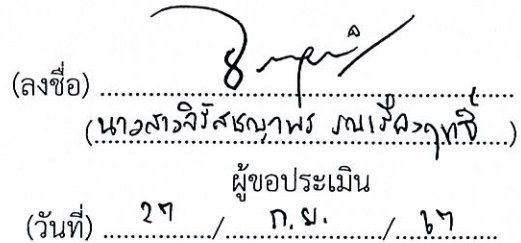 (ลงชื่อ)
(นางสาวจิรัสชญาพร รณเรืองฤทธิ์)
ผู้ขอประเมิน
(วันที่) 27 / ก.ย. / 67